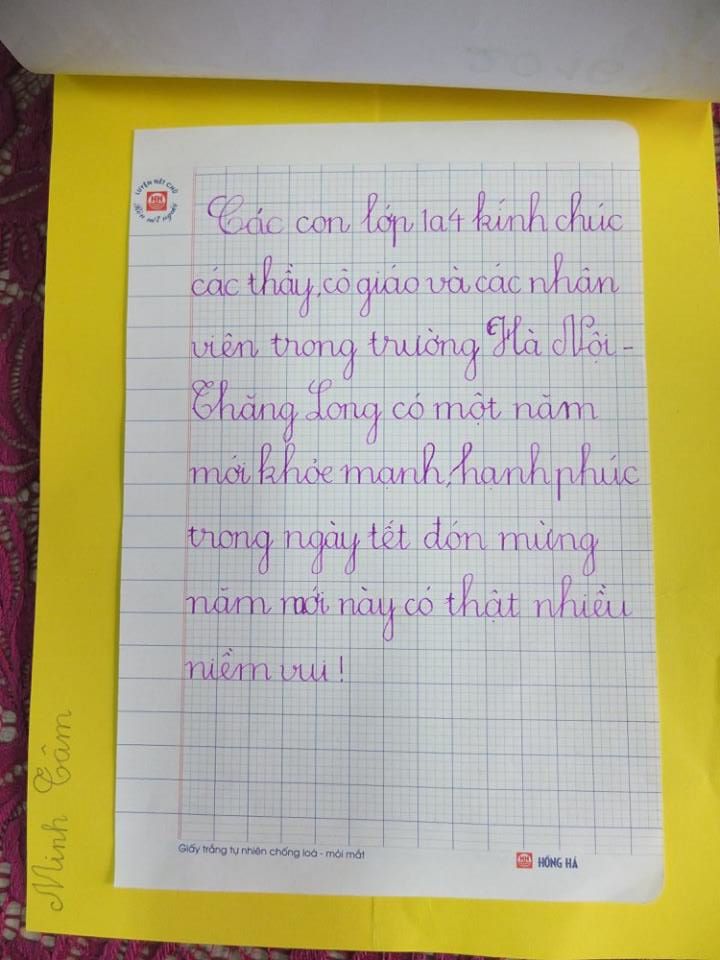 LUYỆN NÉT CHỮ
Rèn nết người
HH
Các con lớp 1a4 kính chúc
các thầy, cô giáo và các nhân
viên trong trường Hà Nội -
Thăng Long có một năm
mới khỏe mạnh, hạnh phúc
trong ngày tết đón mừng
năm mới này có thật nhiều
niềm vui!
Minh Tâm
Giấy trắng tự nhiên chống loá - mỏi mắt
HH HỒNG HÀ